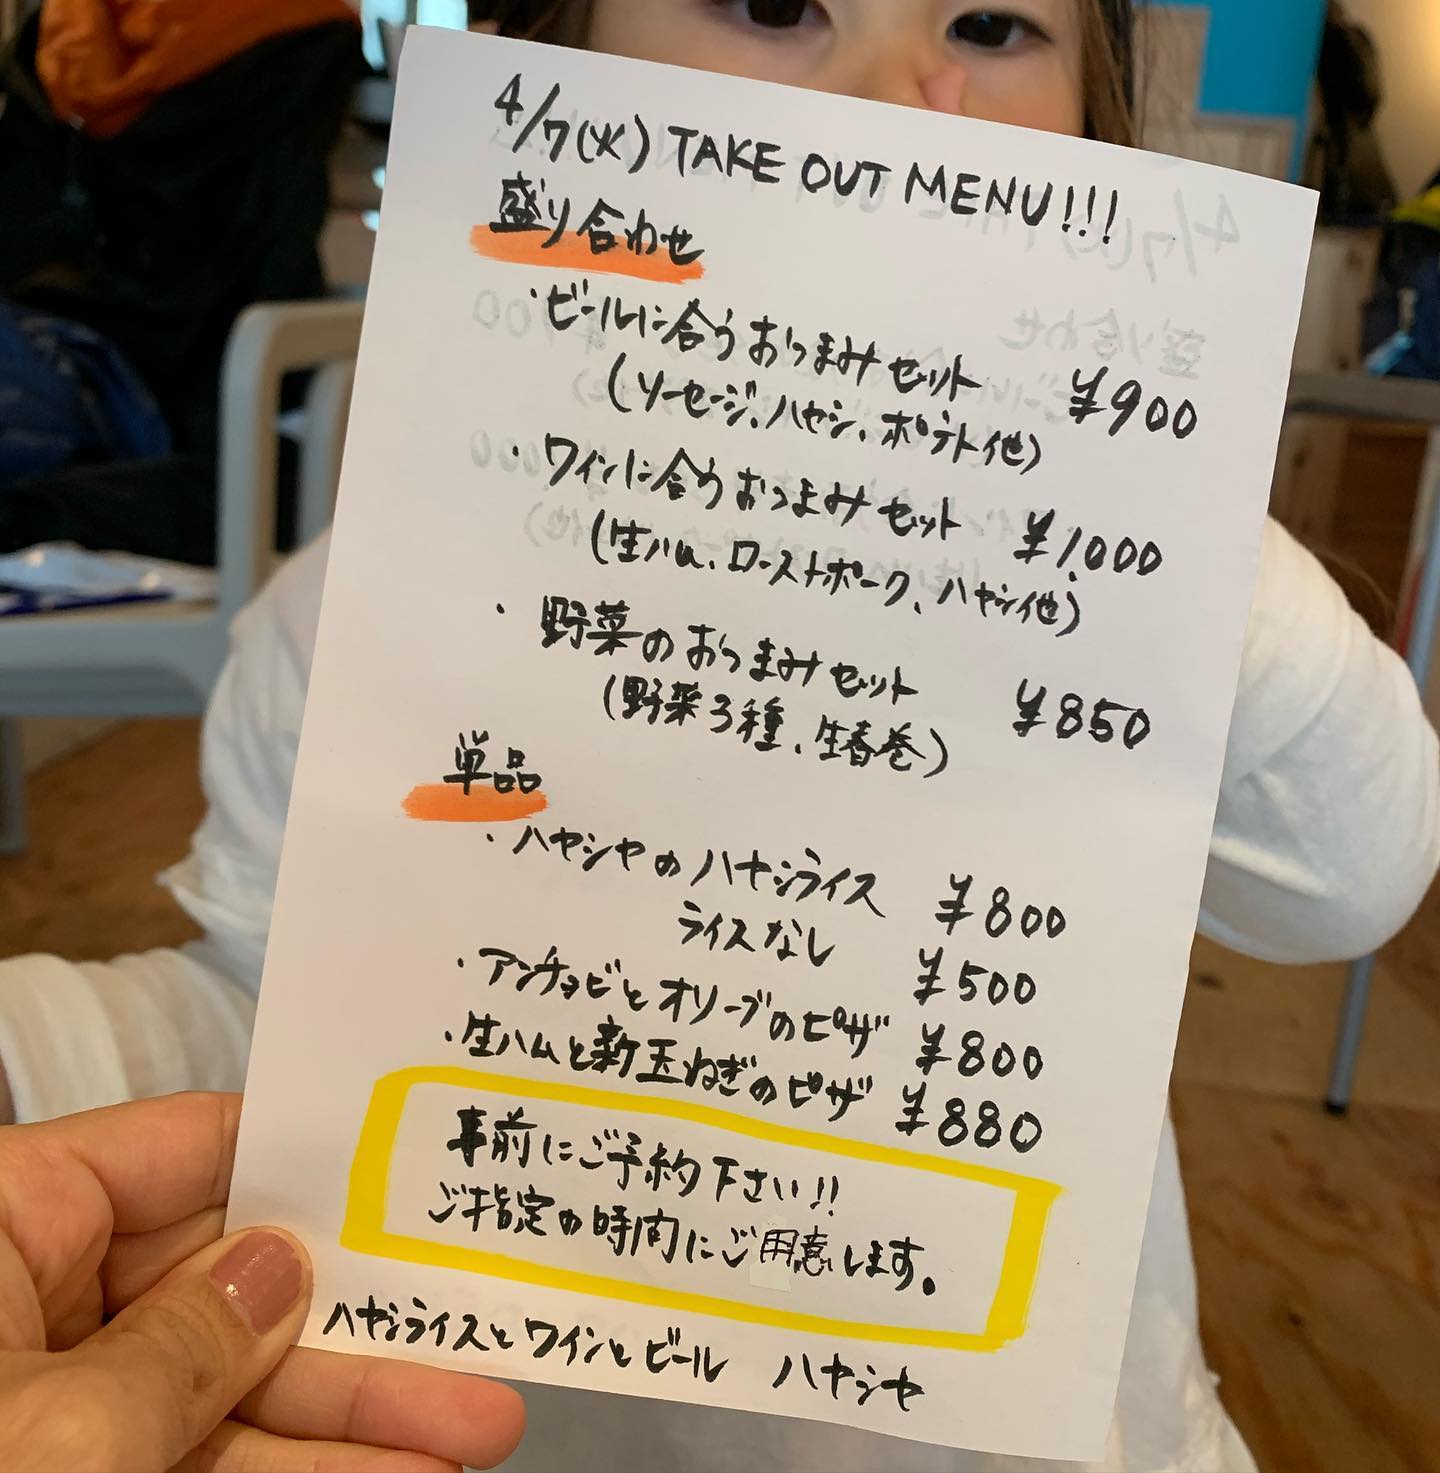 4/7(火) TAKE OUT MENU!!!
盛り合わせ
・ビールに合うおつまみセット ¥900
(ソーセージ、ハヤシ、ポテト他)
・ワインに合うおつまみセット ¥1,000
(生ハム、ローストポーク、ハヤシ他)
・野菜のおつまみセット ¥850
(野菜3種、生春巻)
単品
・ハヤシヤのハヤシライス ¥800
ライスなし ¥500
・アンチョビとオリーブのピザ ¥800
・生ハムと新玉ねぎのピザ ¥880
事前にご予約下さい!!
ご指定の時間にご用意します。
ハヤシライスとワインとビール ハヤシヤ